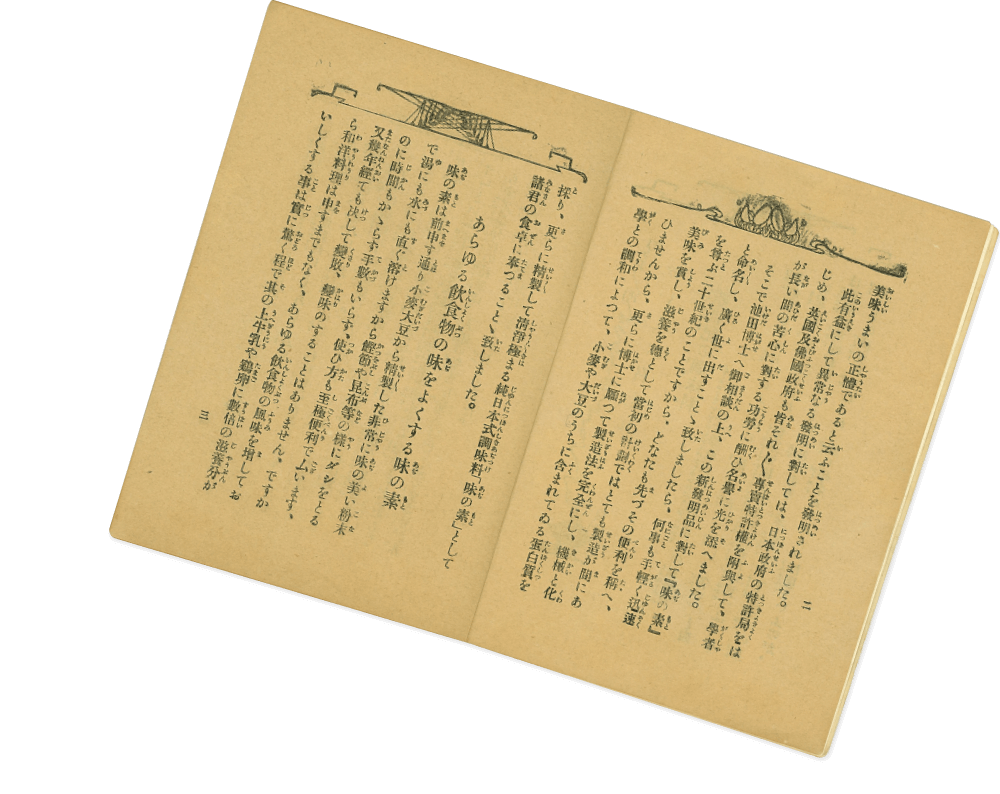 美味うまいの正體であると云ふことを發明されました。
此有益にして異常なる發明に對しては、日本政府の特許局をは
じめ、英國及佛國政府も皆それ〲專賣特許權を附與して、學者
が長い間の苦心に對する功勞に酬ひ名譽に光を添へました。
そこで池田博士へ御相談の上、この新發明品に對して『味の素』
と命名し、廣く世に出すことゝ致しましたら、何事も手輕く迅速
を尊ぶ二十世紀のことですから、どなたも先づその便利を稱へ、
美味を賞し、滋養を德として當初の計劃ではとても製造が間にあ
ひませんから、更らに博士に願つて製造法を完全にし、機械と化
學との調和によつて、小麥や大豆のうちに含まれてゐる蛋白質を
二
採り、更らに精製して淸淨極まる純日本式調味料「味の素」として
諸君の食卓に奉つることゝ致しました。
あらゆる飲食物の味をよくする味の素
味の素は前申す通り小麥大豆から精製した非常に味の美い粉末
で湯にも水にも直ぐ溶けますから鰹節や昆布等の樣にダシをとる
のに時間もかゝらず手數もいらず使ひ方も至極便利で厶います、
又幾年經ても決して變敗、變味のすることはありません、ですか
ら和洋料理は申すまでもなく、あらゆる飲食物の風味を增して、お
いしくする事は實に驚く程で其の上牛乳や鷄卵に數倍の滋養分が
三